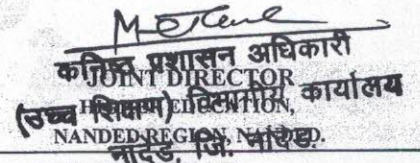 कनिष्ठ प्रशासन अधिकारी
JOINT DIRECTOR
(उच्च शिक्षण) विभागीय कार्यालय
HIGHER EDUCATION,
NANDED REGION, NANDED.
नांदेड, जि. नांदेड.